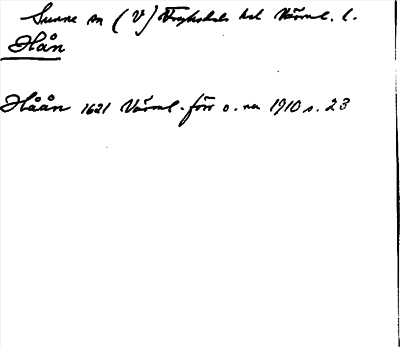 Sunne sn (V) Fryksdals hd Värml. l.
Hån
Håån 1621 Värml. förr o. nu 1910 s. 23